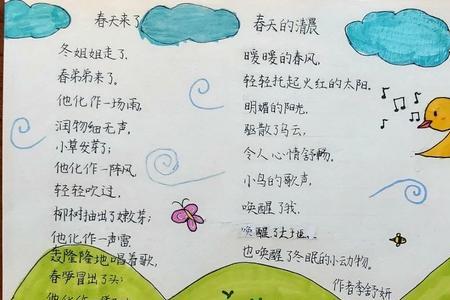 春天来了
冬姐姐走了,
春弟弟来了,
他化作一场雨,
润物细无声,
小草发芽了;
他化作一阵风,
轻轻吹过,
柳树抽出了嫩芽;
他化作一声雷
轰隆隆地唱着歌,
春笋冒出了头;
他化作
春天的清晨
暖暖的春风,
轻轻托起火红的太阳.
明媚的阳光,
驱散了乌云,
令人心情舒畅.
小鸟的歌声,
唤醒了我,
唤醒了大地,
也唤醒了冬眠的小动物。
作者李舒妍